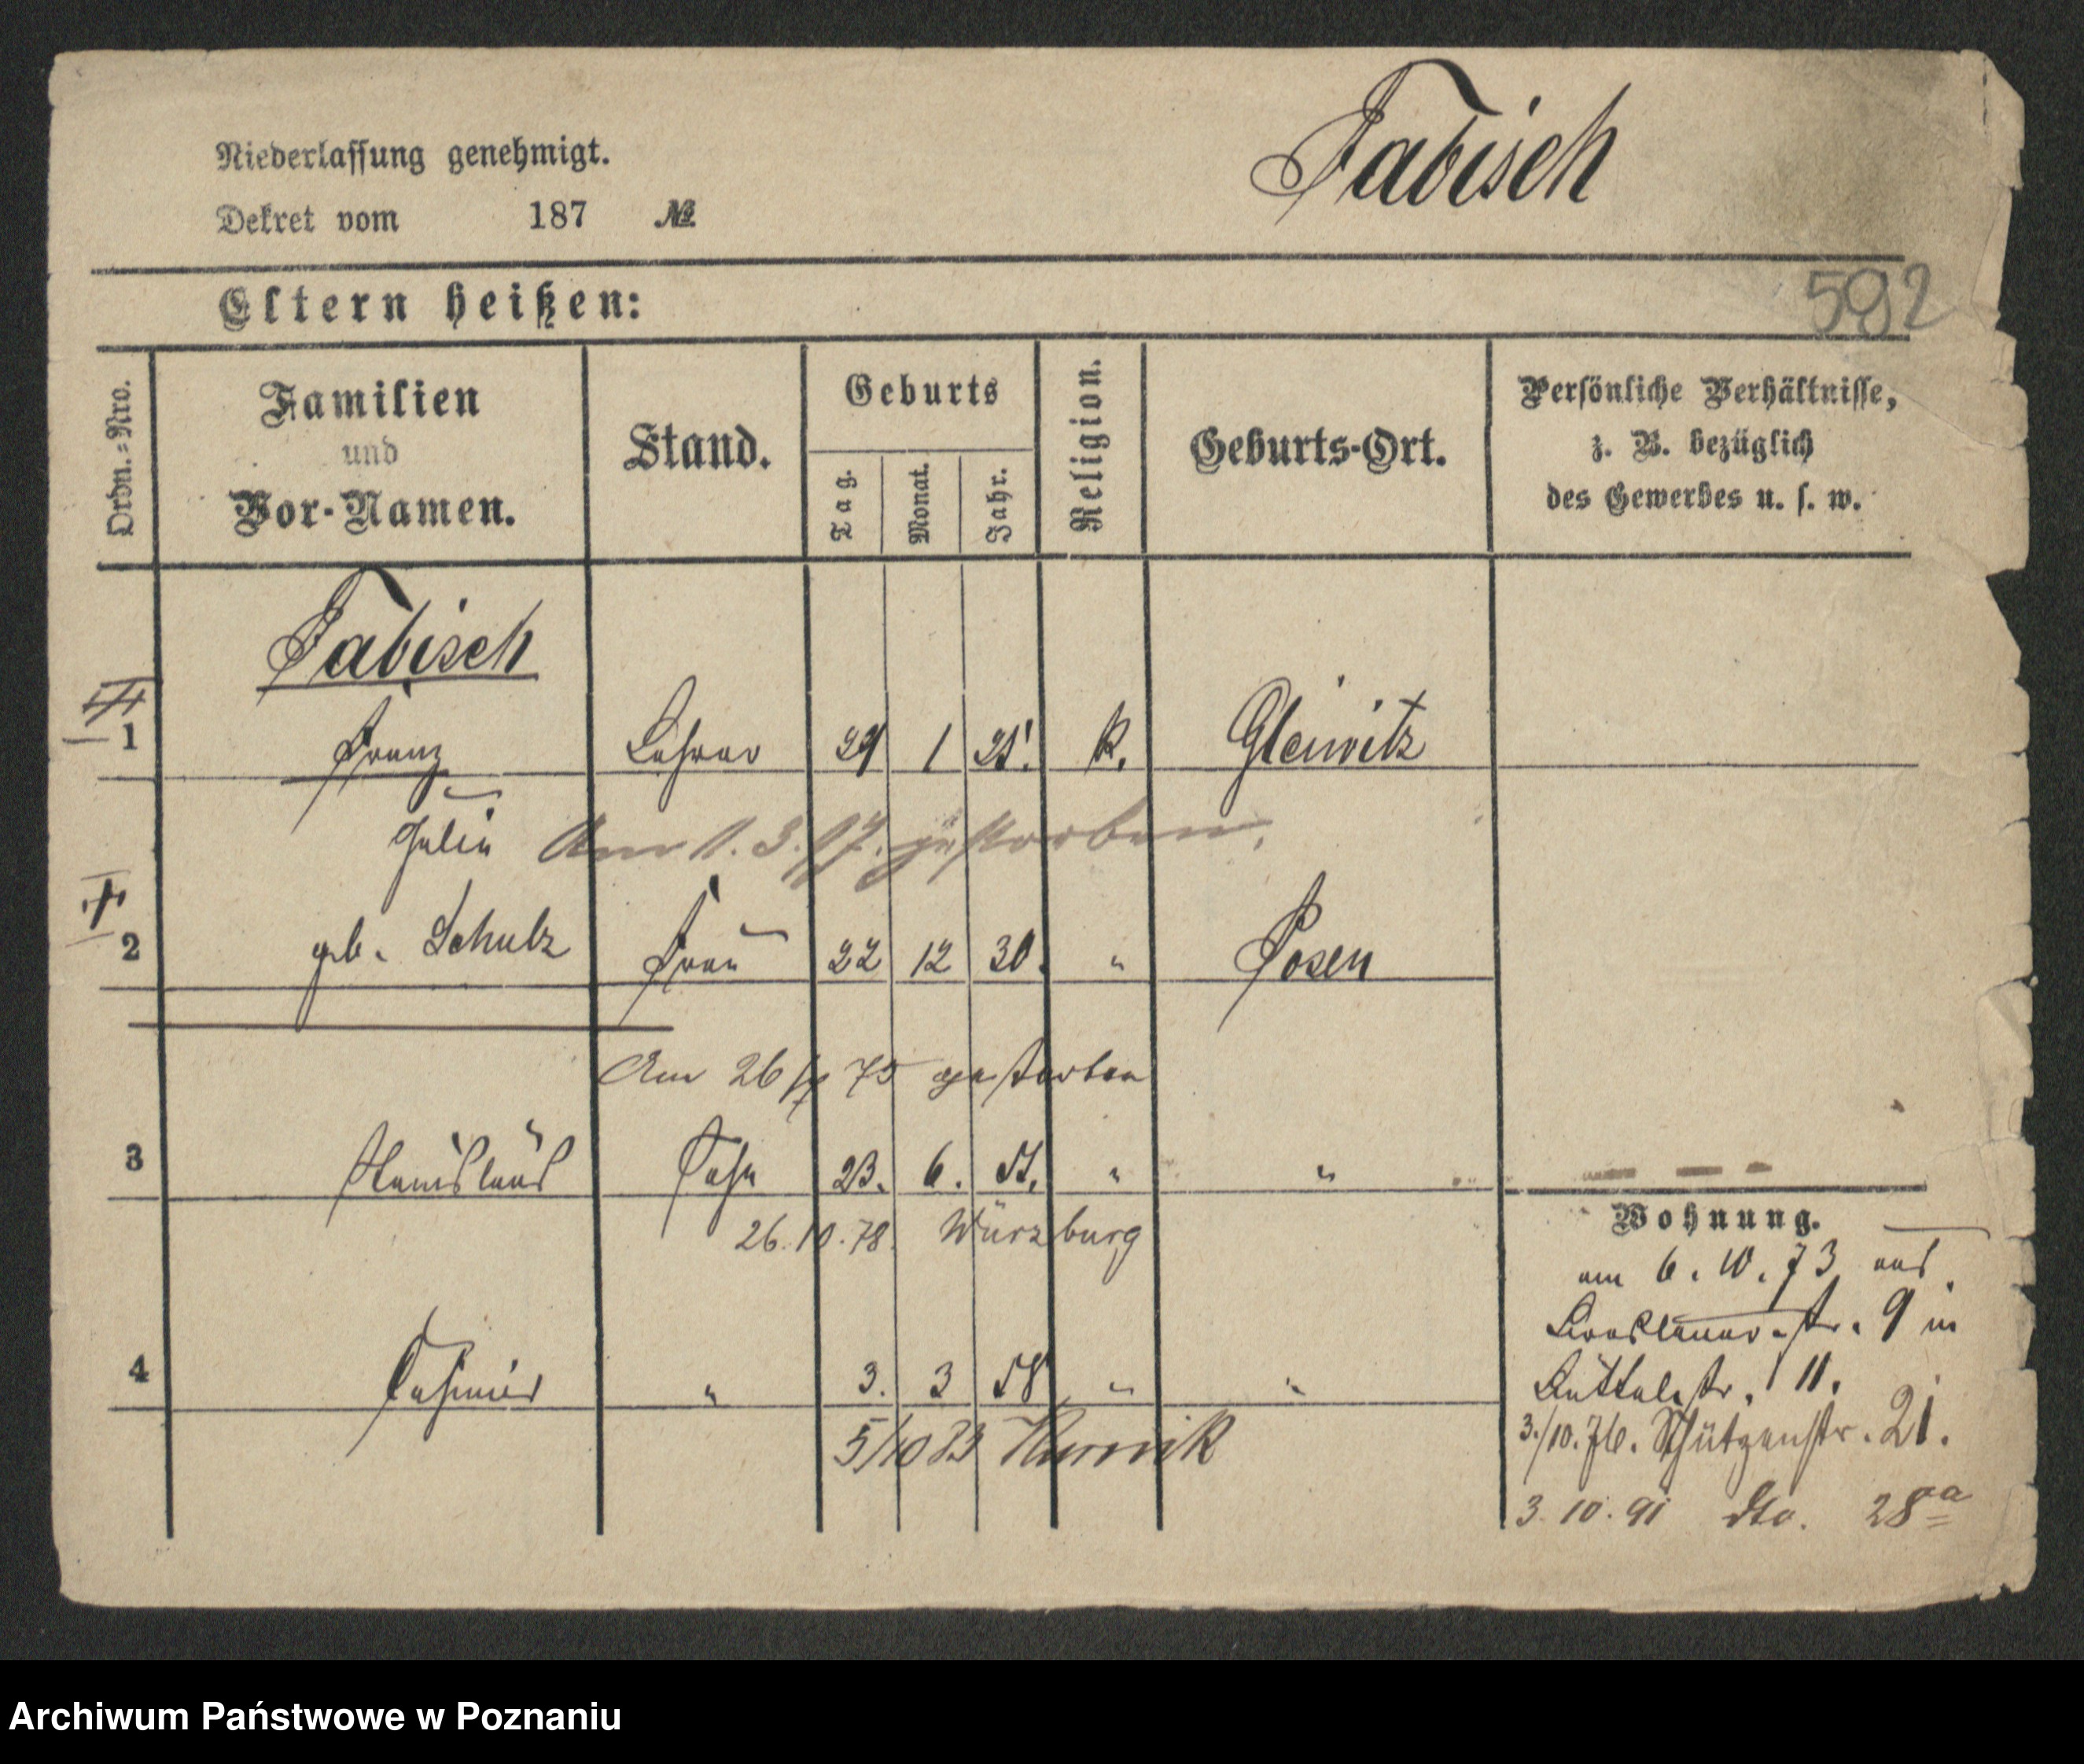 Fabisch
Niederlassung genehmigt.
Dekret vom 187 №
592
Eltern heißen:
Ordn.-Nro.
Familien
und
Vor-Namen.
Stand.
Geburts
Tag.
Monat.
Jahr.
Religion.
Geburts-Ort.
Persönliche Verhältnisse,
z. B. bezüglich
des Gewerbes u. s. w.
Fabisch
1 Franz Lehrer 29 1 25. k. Gleiwitz
Julie Am 1. 3. 17. gestorben.
2 geb. Schulz Frau 22 12 30. " Posen
Am 26 75 gestorben
3 Stanislaus Sohn 23. 6. 57. " "
26.10.78. Würzburg
4 Casimir " 3. 3 58 " "
5/10 83 Kurnik
Wohnung.
am 6. 10. 73 aus
Breslauer-str. 9 in
Büttelstr. 11.
3./10.76. Schützenstr. 21.
3. 10. 91 dto. 28a
Archiwum Państwowe w Poznaniu